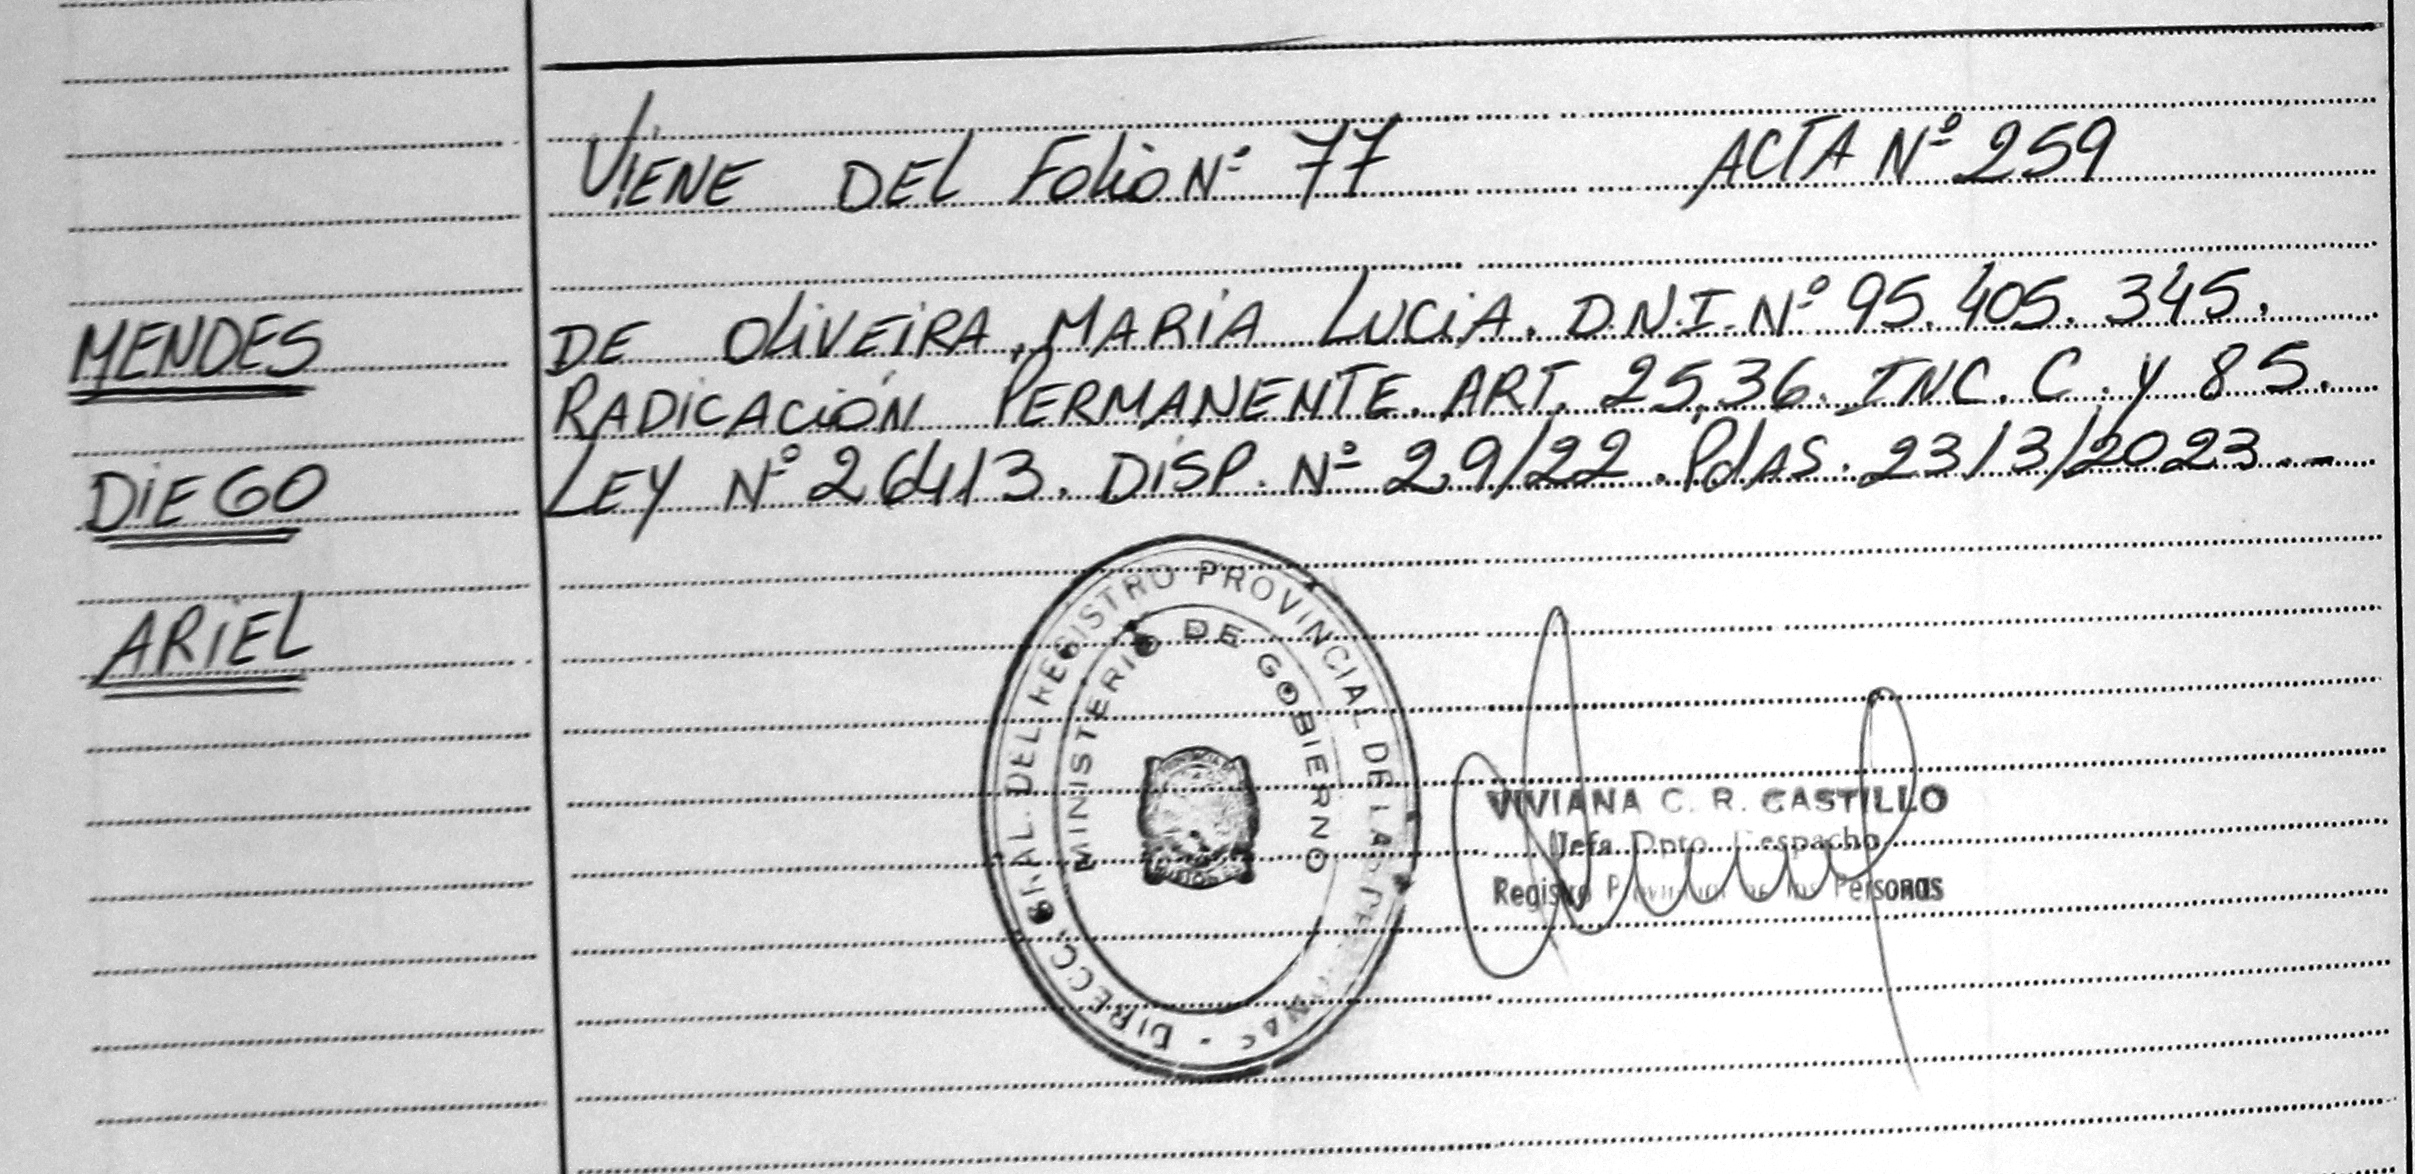 VIENE DEL FOLIO Nº 77 ACTA Nº 259
MENDES
DIEGO
ARIEL
DE OLIVEIRA, MARÍA LUCIA. D.N.I. Nº 95.405.345.
RADICACIÓN PERMANENTE. ART. 25,36. INC. C. Y 85.
LEY Nº 26413. DISP. Nº 29/22. Pdas. 23/3/2023.-
DIRECC. GRAL. DEL REGISTRO PROVINCIAL DE LAS
MINISTERIO DE GOBIERNO
VIVIANA C. R. CASTILLO
Jefa Dpto. Despacho
Registro Provincial de las Personas